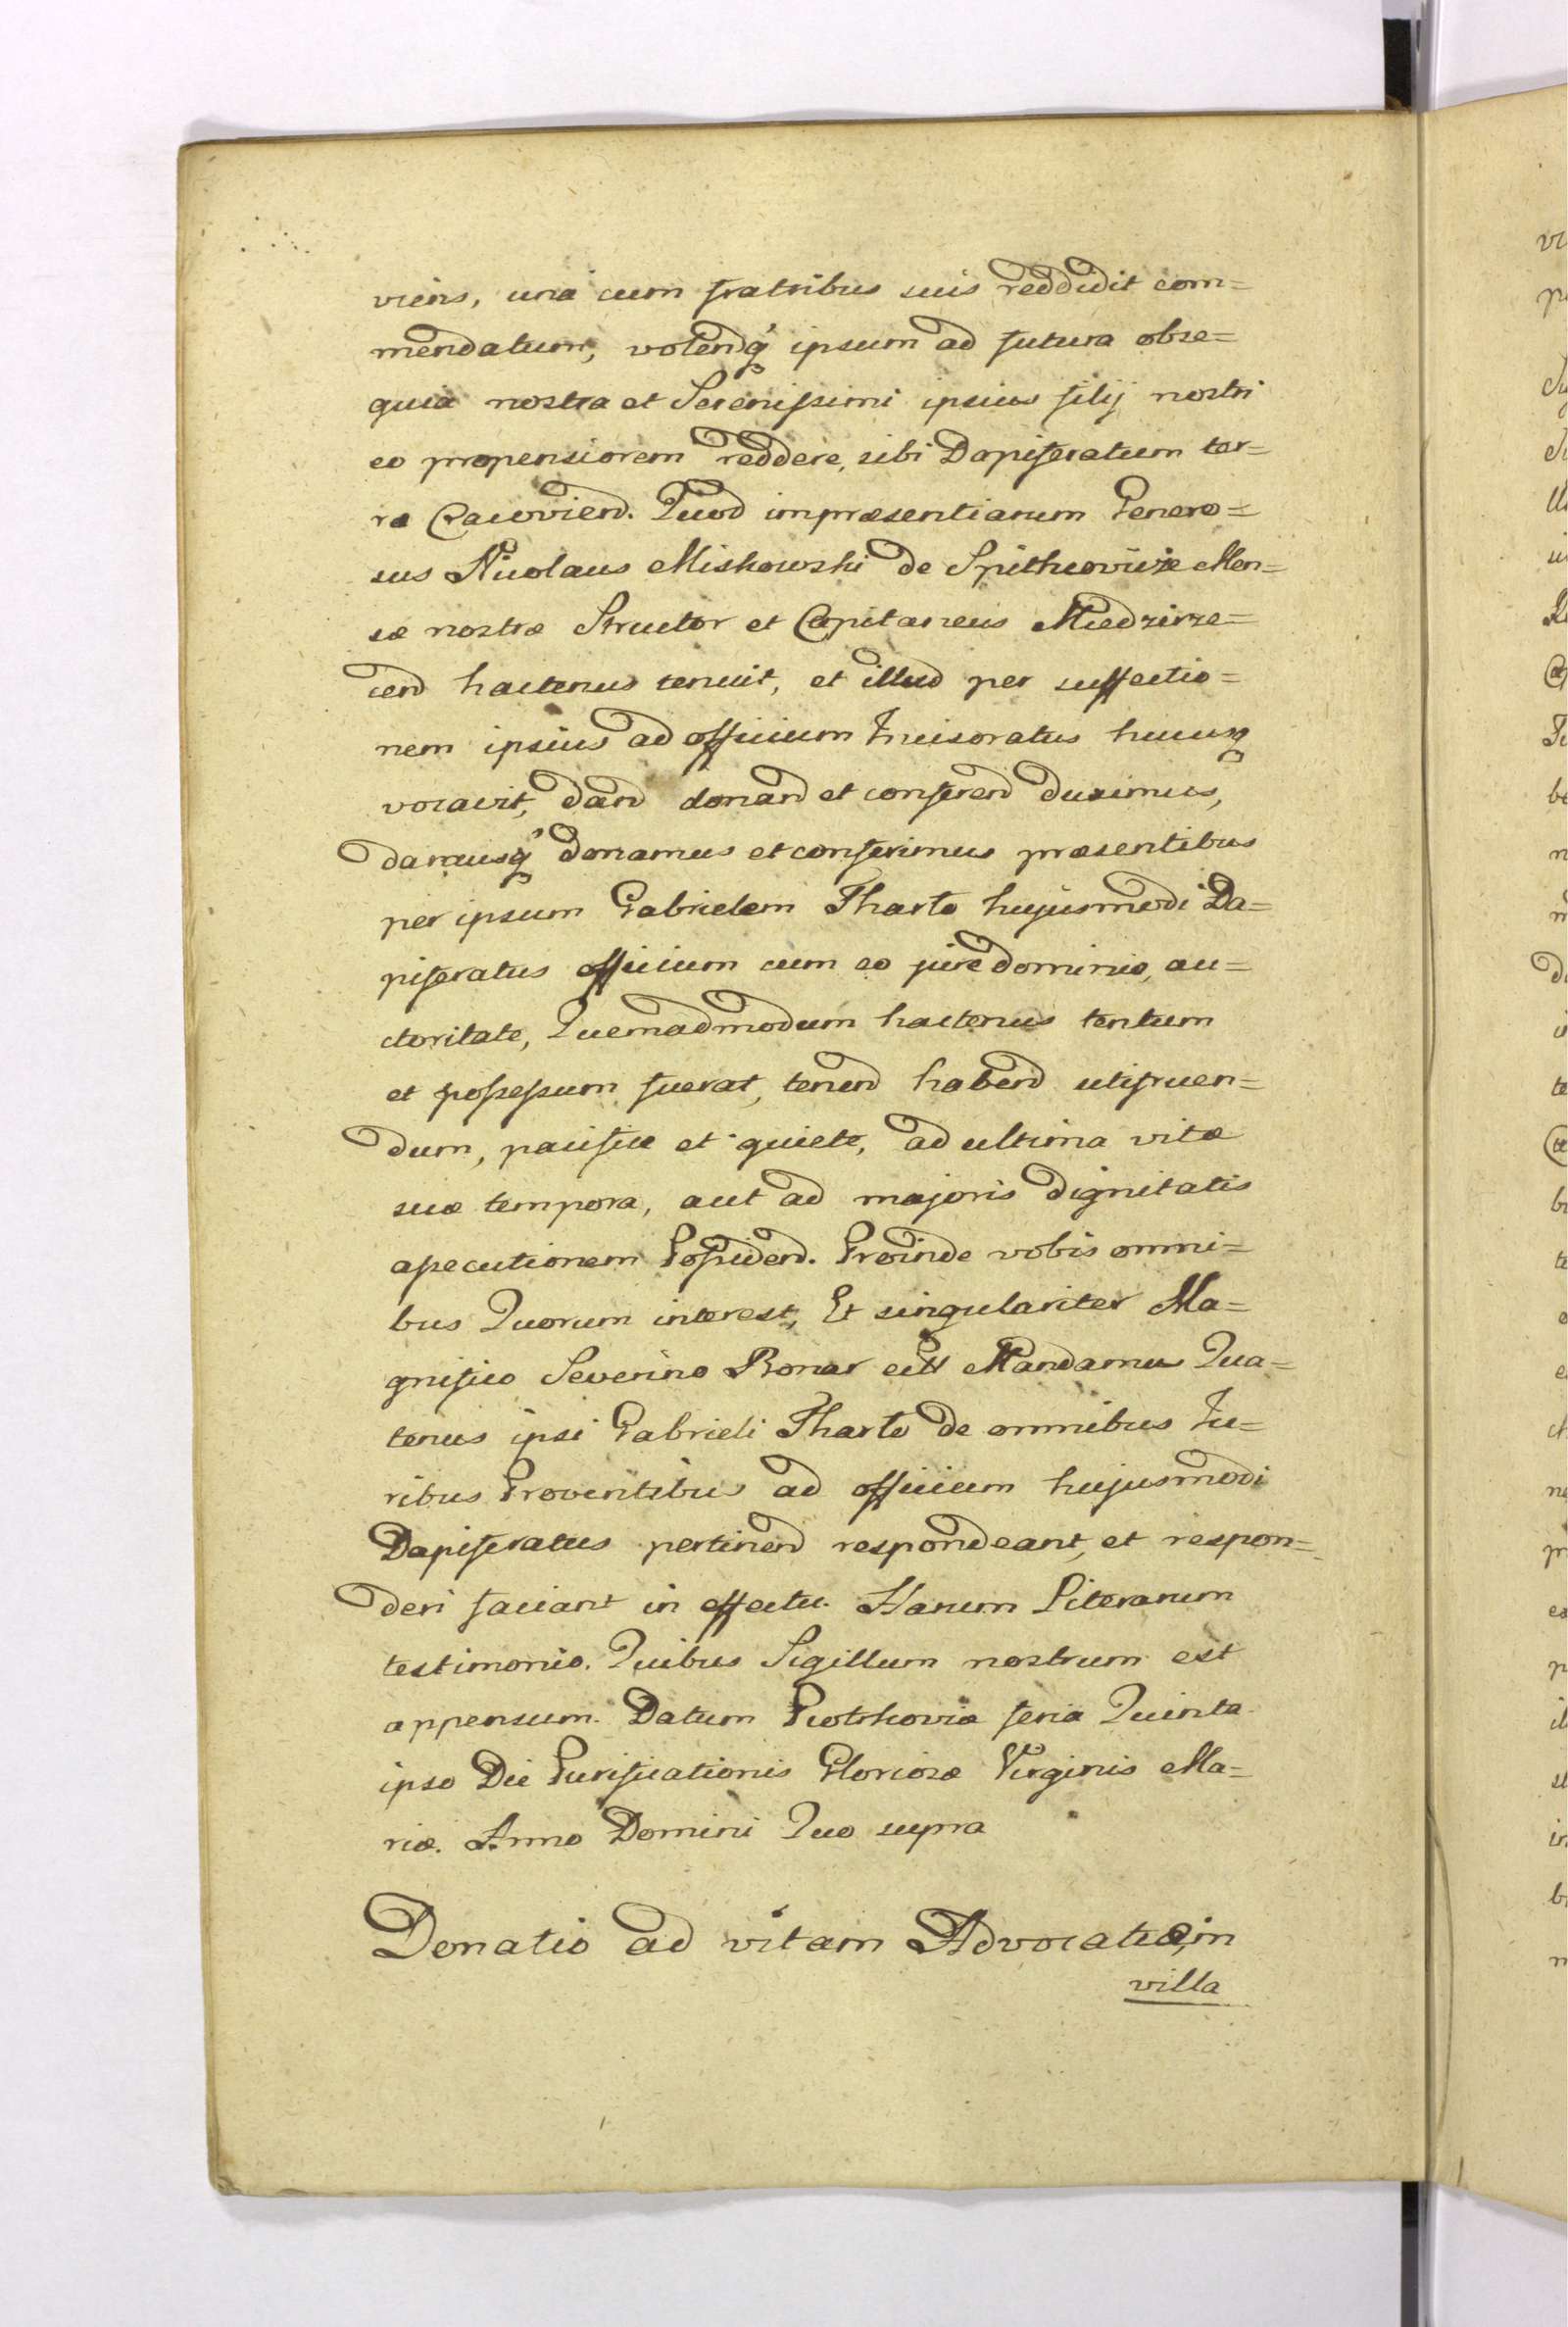 viens, una cum fratribus suis reddidit com=
mendatum, volendq' ipsum ad futura obse=
quia nostra et Serenissimi ipsius filij nostri
eo propensiorem reddere, sibi Dapiferatum ter=
ræ Cracoviend. Quod impræsentiarum Genero=
sus Nicolaus Miskowski de Spithcovicze Men=
sæ nostræ Structor et Capitaneus Miedzirze=
cend hactenus tenuit, et illud per suffectio=
nem ipsius ad officium Incisoratus hucusq
vocavit, dand donand et conferend duximus,
damusq' donamus et conferimus præsentibus
per ipsum Gabrielem Tharlo hujusmodi Da=
piferatus officium cum eo jure dominio, au=
ctoritate, Quemadmodum hactenus tentum
et possessum fuerat, tenend habend utifruen=
dum, pacifice et quiete, ad ultima vitæ
suæ tempora, aut ad majoris dignitatis
assecutionem Possidend. Proinde vobis omni=
bus Quorum interest, Et singulariter Ma=
gnifico Severino Bonar Mandamus Qua=
tenus ipsi Gabrieli Tharlo de omnibus Ju=
ribus Proventibus ad officium hujusmodi
Dapiferatus pertinend respondeant, et respon=
deri faciant in effectu. Harum Literarum
testimonio. Quibus Sigillum nostrum est
appensum. Datum Piotrkoviæ feria Quinta
ipso Die Purificationis Gloriosæ Virginis Ma=
riæ. Anno Domini Quo supra
Donatio ad vitam Advocatiæ, in
villa